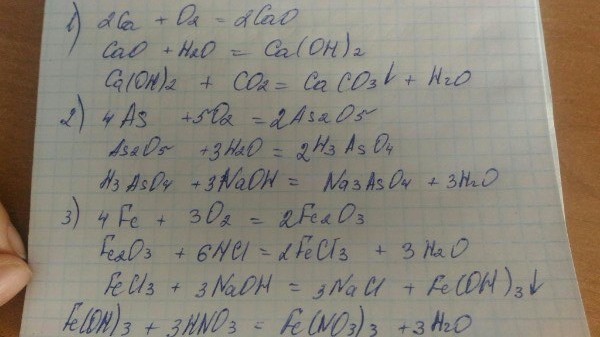 1) 2Ca + O2 = 2CaO
CaO + H2O = Ca(OH)2
Ca(OH)2 + CO2 = CaCO3↓ + H2O
2) 4As + 5O2 = 2As2O5
As2O5 + 3H2O = 2H3AsO4
H3AsO4 + 3NaOH = Na3AsO4 + 3H2O
3) 4Fe + 3O2 = 2Fe2O3
Fe2O3 + 6HCl = 2FeCl3 + 3H2O
FeCl3 + 3NaOH = 3NaCl + Fe(OH)3↓
Fe(OH)3 + 3HNO3 = Fe(NO3)3 + 3H2O